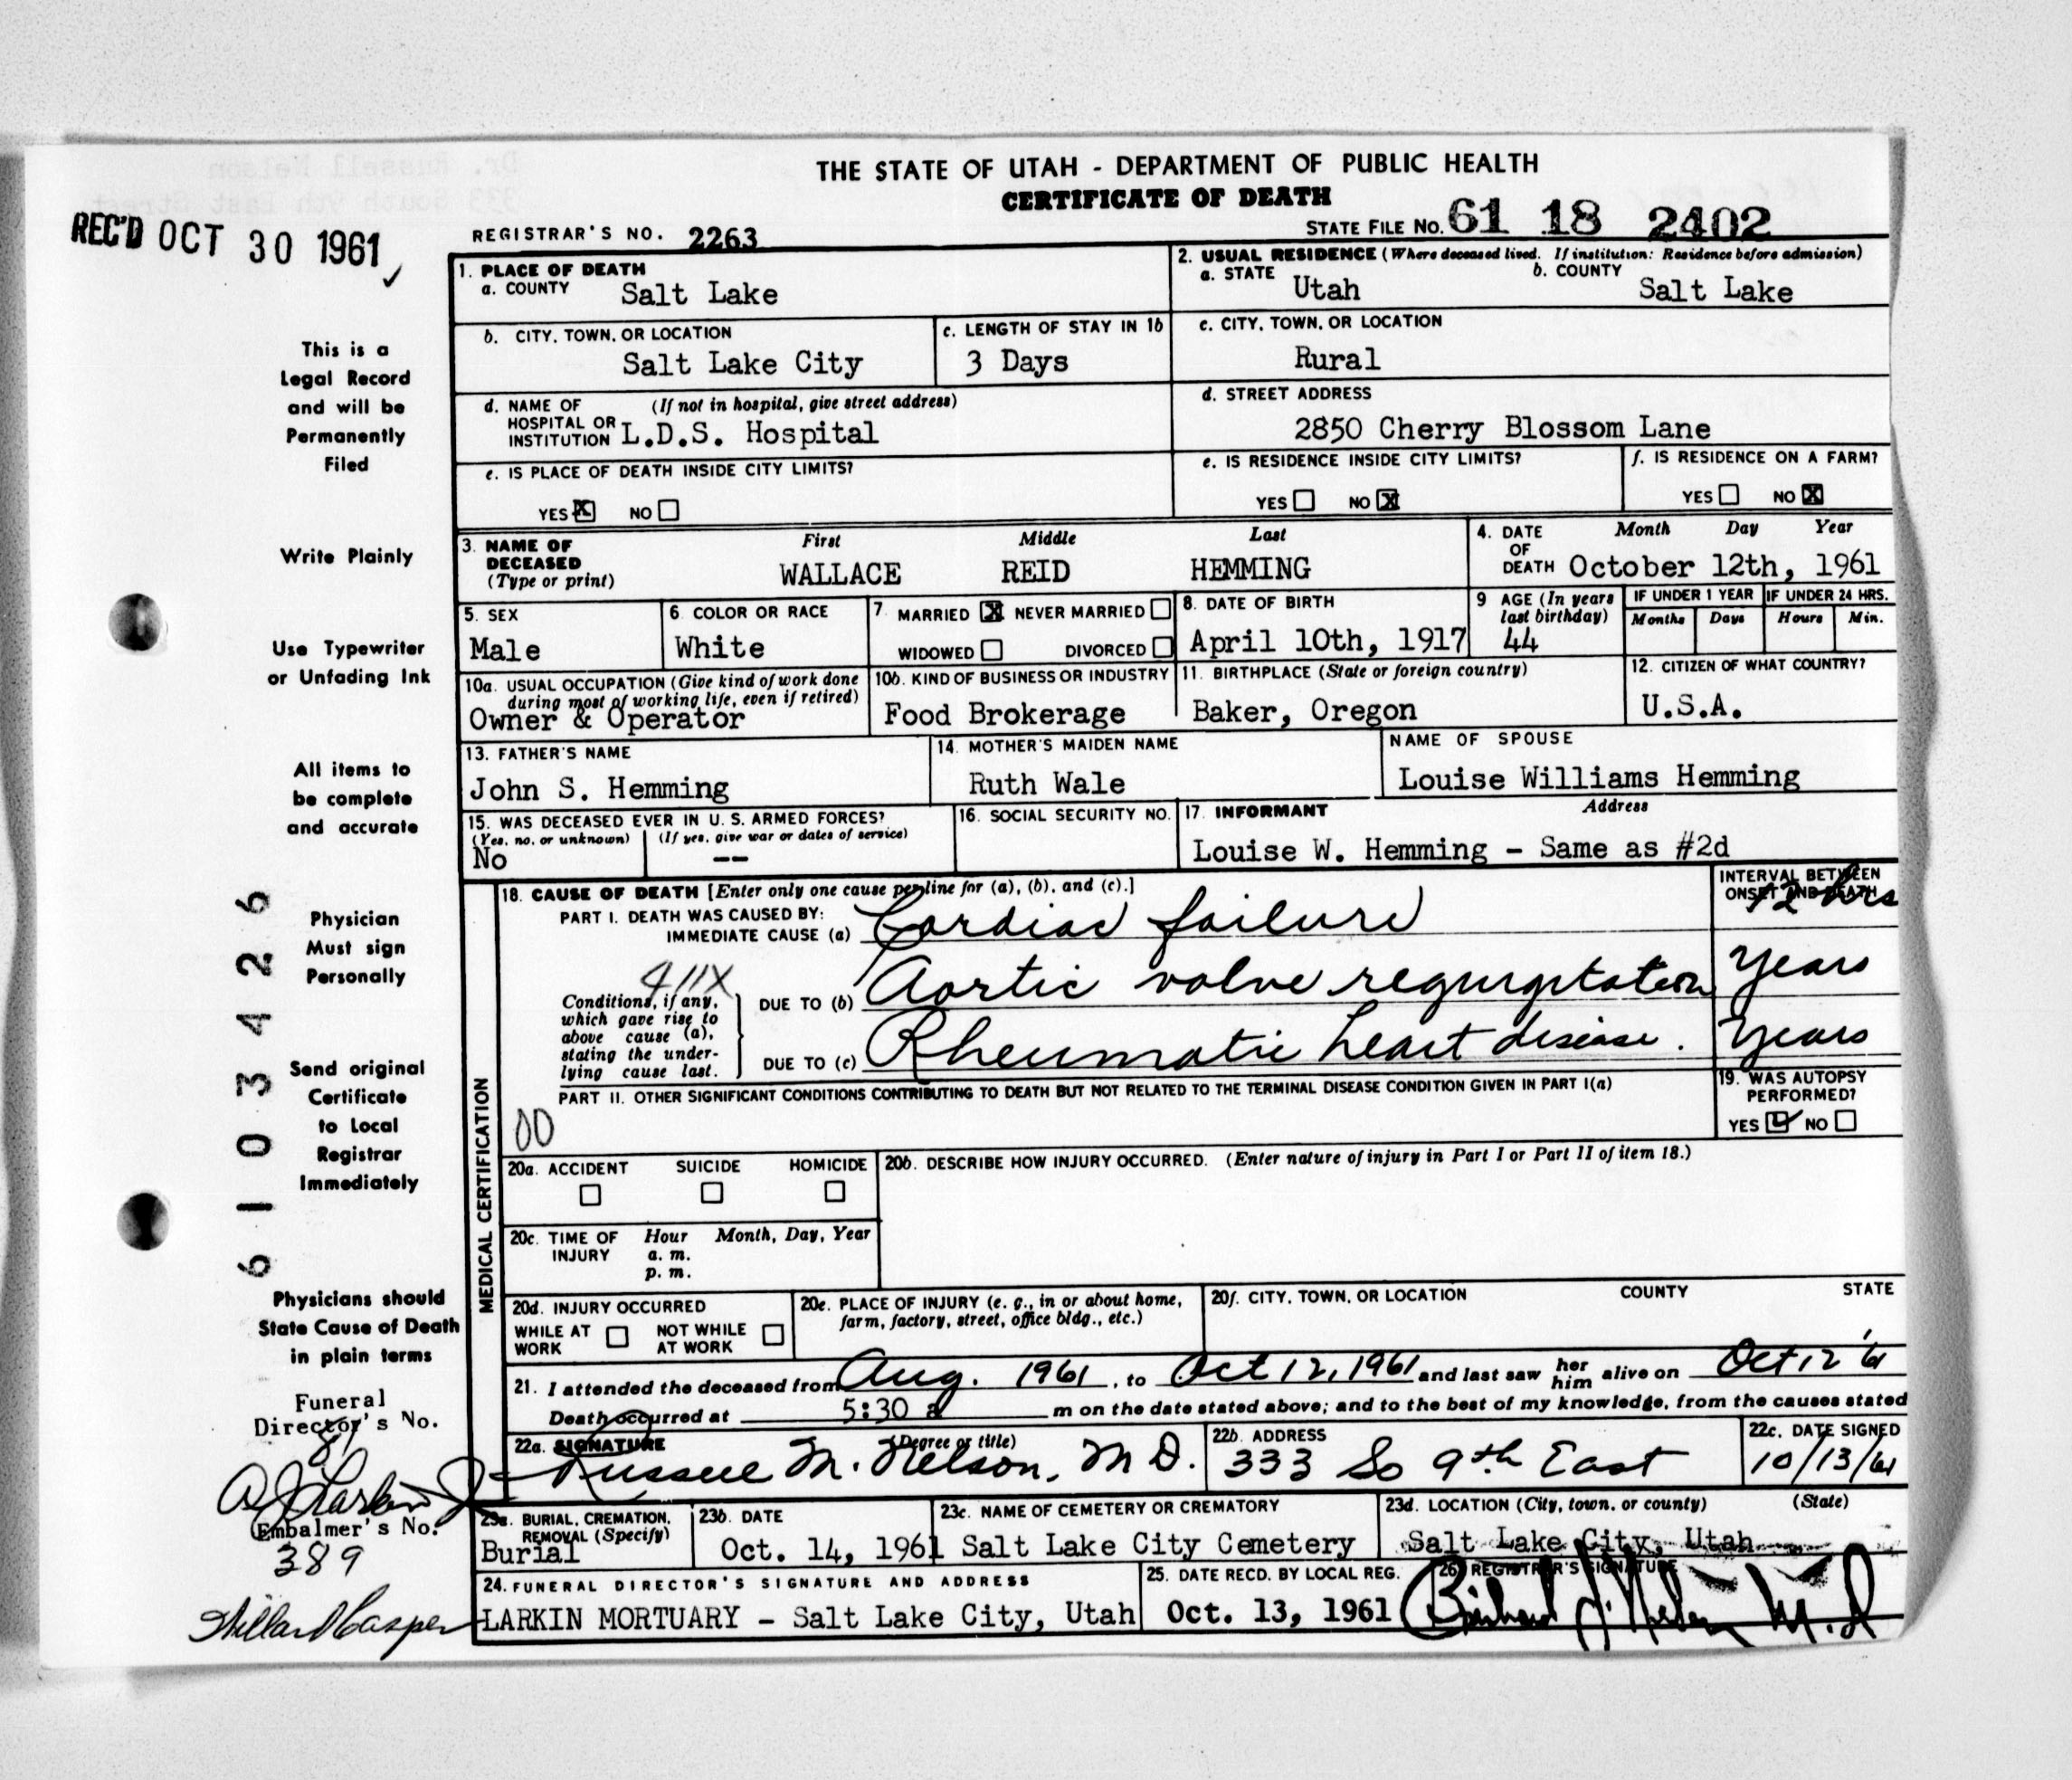 THE STATE OF UTAH - DEPARTMENT OF PUBLIC HEALTH
CERTIFICATE OF DEATH
REC'D OCT 30 1961
REGISTRAR'S NO. 2263
STATE FILE NO. 61 18 2402
1. PLACE OF DEATH
a. COUNTY Salt Lake
2. USUAL RESIDENCE (Where deceased lived. If institution: Residence before admission)
a. STATE Utah b. COUNTY Salt Lake
b. CITY, TOWN, OR LOCATION Salt Lake City
c. LENGTH OF STAY IN 1b 3 Days
c. CITY, TOWN, OR LOCATION Rural
d. NAME OF HOSPITAL OR INSTITUTION (If not in hospital, give street address) L.D.S. Hospital
d. STREET ADDRESS 2850 Cherry Blossom Lane
e. IS PLACE OF DEATH INSIDE CITY LIMITS? YES X NO
e. IS RESIDENCE INSIDE CITY LIMITS? YES NO X
f. IS RESIDENCE ON A FARM? YES NO X
3. NAME OF DECEASED (Type or print) First Middle Last
WALLACE REID HEMMING
4. DATE OF DEATH Month Day Year
October 12th, 1961
5. SEX Male
6. COLOR OR RACE White
7. MARRIED X NEVER MARRIED
WIDOWED DIVORCED
8. DATE OF BIRTH April 10th, 1917
9 AGE (In years last birthday) 44
IF UNDER 1 YEAR Months Days
IF UNDER 24 HRS. Hours Min.
10a. USUAL OCCUPATION (Give kind of work done during most of working life, even if retired)
Owner & Operator
10b. KIND OF BUSINESS OR INDUSTRY Food Brokerage
11. BIRTHPLACE (State or foreign country) Baker, Oregon
12. CITIZEN OF WHAT COUNTRY? U.S.A.
13. FATHER'S NAME John S. Hemming
14. MOTHER'S MAIDEN NAME Ruth Wale
NAME OF SPOUSE Louise Williams Hemming
15. WAS DECEASED EVER IN U. S. ARMED FORCES?
(Yes, no, or unknown) (If yes, give war or dates of service)
No --
16. SOCIAL SECURITY NO.
17. INFORMANT Address
Louise W. Hemming - Same as #2d
MEDICAL CERTIFICATION
18. CAUSE OF DEATH [Enter only one cause per line for (a), (b), and (c).]
INTERVAL BETWEEN ONSET AND DEATH
PART I. DEATH WAS CAUSED BY:
IMMEDIATE CAUSE (a) Cardiac failure 12 hrs
411X
Conditions, if any, which gave rise to above cause (a), stating the underlying cause last.
DUE TO (b) Aortic valve regurgitation years
DUE TO (c) Rheumatic heart disease. years
PART II. OTHER SIGNIFICANT CONDITIONS CONTRIBUTING TO DEATH BUT NOT RELATED TO THE TERMINAL DISEASE CONDITION GIVEN IN PART I(a)
00
19. WAS AUTOPSY PERFORMED? YES ✓ NO
20a. ACCIDENT SUICIDE HOMICIDE
20b. DESCRIBE HOW INJURY OCCURRED. (Enter nature of injury in Part I or Part II of item 18.)
20c. TIME OF INJURY Hour Month, Day, Year
a. m.
p. m.
20d. INJURY OCCURRED
WHILE AT WORK NOT WHILE AT WORK
20e. PLACE OF INJURY (e. g., in or about home, farm, factory, street, office bldg., etc.)
20f. CITY, TOWN, OR LOCATION COUNTY STATE
21. I attended the deceased from Aug. 1961, to Oct 12, 1961 and last saw her him alive on Oct 12 '61
Death occurred at 5:30 a m on the date stated above; and to the best of my knowledge, from the causes stated
22a. SIGNATURE (Degree or title) Russell M. Nelson, M D.
22b. ADDRESS 333 So 9th East
22c. DATE SIGNED 10/13/61
23a. BURIAL, CREMATION, REMOVAL (Specify) Burial
23b. DATE Oct. 14, 1961
23c. NAME OF CEMETERY OR CREMATORY Salt Lake City Cemetery
23d. LOCATION (City, town, or county) (State) Salt Lake City, Utah
24. FUNERAL DIRECTOR'S SIGNATURE AND ADDRESS
LARKIN MORTUARY - Salt Lake City, Utah
25. DATE RECD. BY LOCAL REG. Oct. 13, 1961
26. REGISTRAR'S SIGNATURE
This is a
Legal Record
and will be
Permanently
Filed
Write Plainly
Use Typewriter
or Unfading Ink
All items to
be complete
and accurate
Physician
Must sign
Personally
Send original
Certificate
to Local
Registrar
Immediately
Physicians should
State Cause of Death
in plain terms
6103426
Funeral
Director's No.
81
Embalmer's No.
389